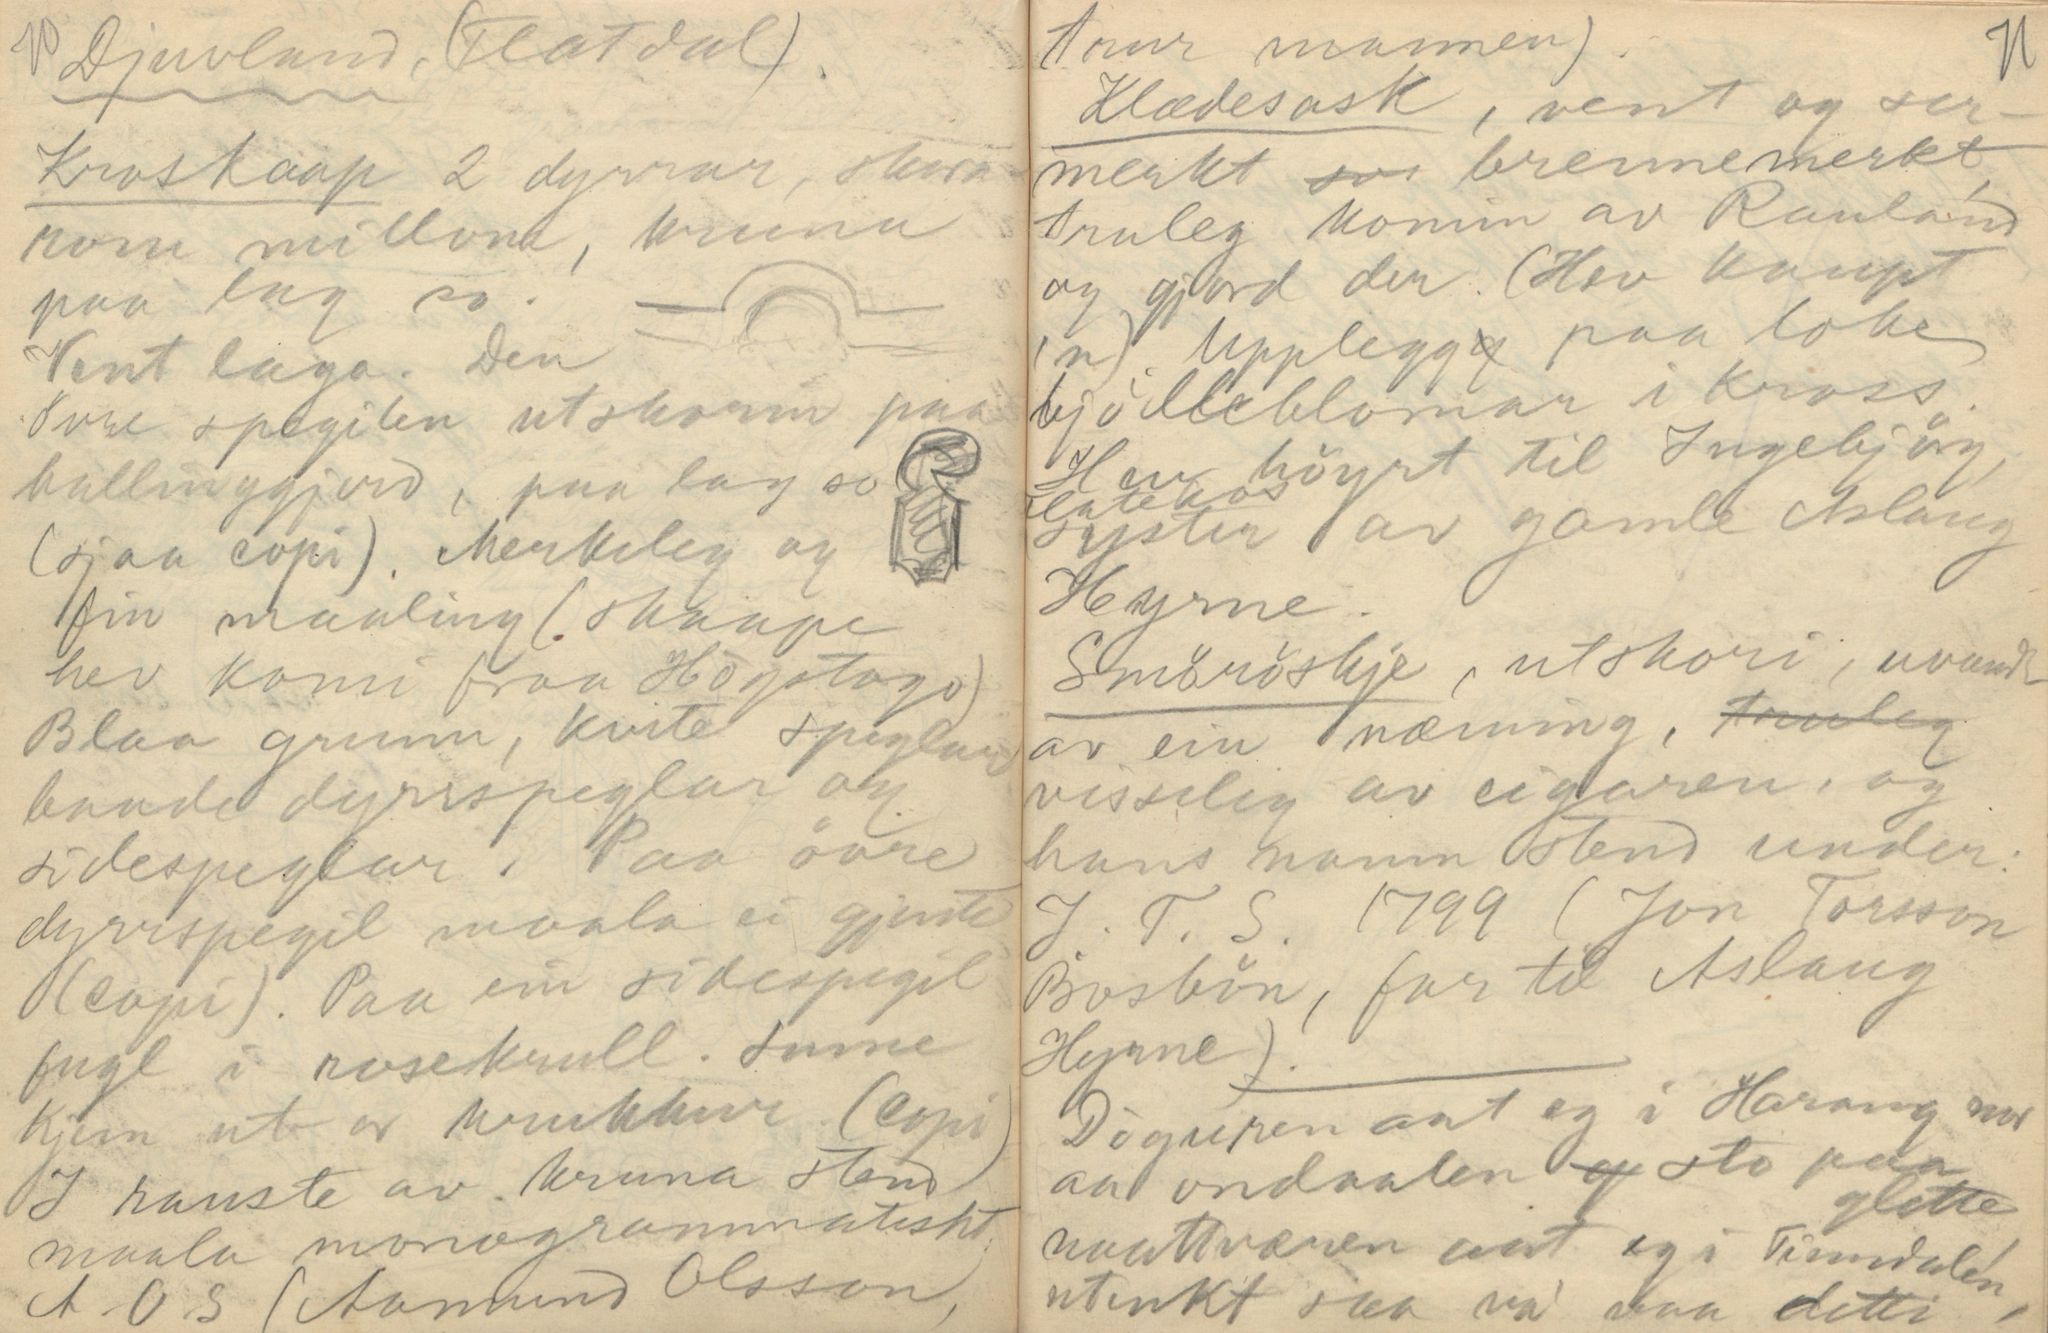 70
Djuvland, (Flatdal).
Kroskaap 2 dyrrar, skora-
rom millom, kruna
paa lag so.
Vent laga. Den
övre spegilen utskorin paa
hallinggjord, paa lag so
(sjaa copi). Merkeleg og
fin maaling (skaape
hev komi fraa Högetogo)
Blaa grunn, kvite speglar
baade dyrrspeglar og
sidespeglar. Paa övre
dyrrspegil maala ei gjente
(copi). Paa ein sidespegil
fugl i rosekrull. Sume
kjem ut or krukkur (copi)
I rauste av kruna stend
maala monogrammatiskt
A O S (Aamund Olsson,
71
trur mannen).
Klædesask, vent og ser-
merkt so brennemerkt,
truleg komin av Rauland
og gjord der. (Hev kaupt
in). Upplegg paa loke
bjölleblomar i kross.
Hev höyrt til Ingebjörg,
Flatekås
syster av gamle Aslaug
Hyrne.
Smöröskje, utskori, uvand-
av ein næming, truleg
visseleg av eigaren, og
hans namn stend under:
J. T. S. 1799 (Jon Torsson
Bosbön, far til Aslaug
Hyrne).
Diguren aat eg i Haraug nor
aa ondaalen og sto paa
glette
naattværen aat eg i Tinndalén,
utenkt saa va' naa detti